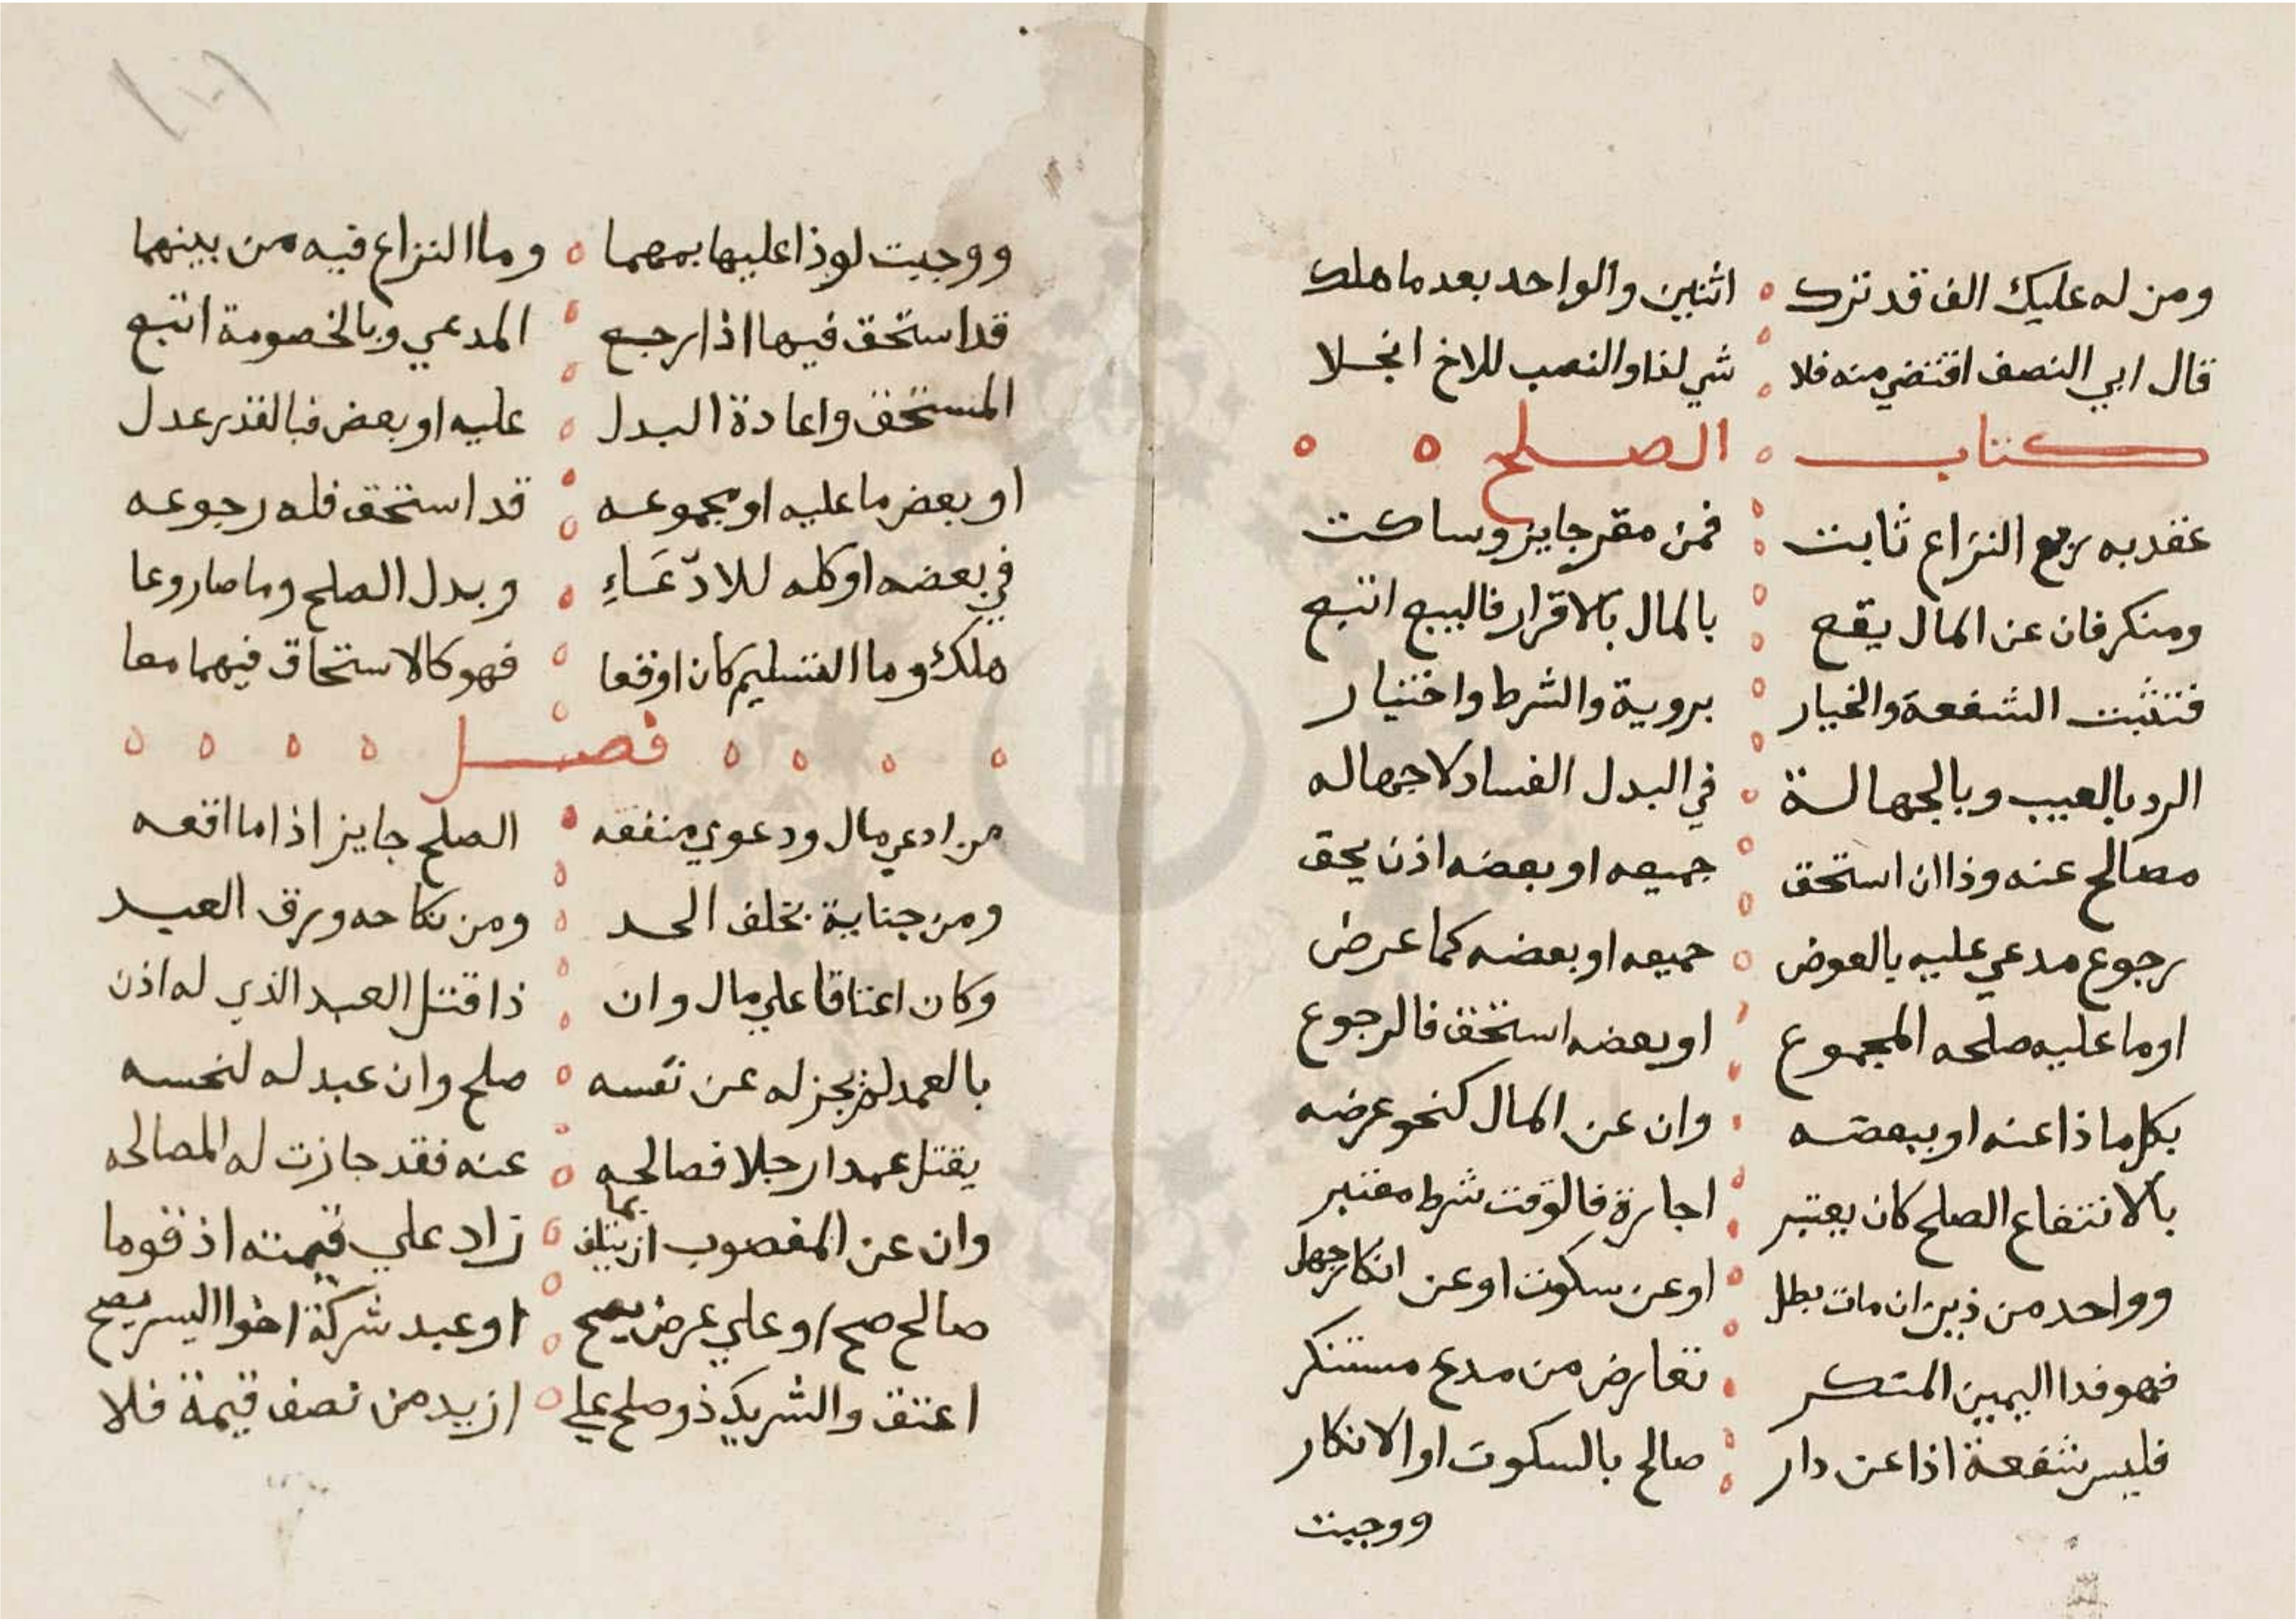 ومن له عليك الف قد ترك اثنين والواحد بعد ما هلك
قال ابي النصف اقتضي منه فلا شي لذا والنصب للاخ انجلا
كتاب الصلح
عقد به رفع النزاع ثابت فمن مقر جايز وساكت
ومنكر فان عن المال يقع بالمال بالاقرار فالبيع اتبع
فتثبت الشفعة والخيار بروية والشرط واختيار
الرد بالعيب وبالجهالة في البدل الفساد لا جهاله
مصالح عنه وذا ان استحق جميعه او بعضه اذن يحق
رجوع مدعي عليه بالعوض جميعه او بعضه كما عرض
او ما عليه صلحه المجموع او بعضه استحق فالرجوع
بكل ما ذا عنه او ببعضه وان عن المال كنحو عرضه
بالانتفاع الصلح كان يعتبر اجارة فالوقت شرط معتبر
وواحد من ذين ان مات بطل او عن سكوت او عن انكار جهل
فهو فدا اليمين المنكر تعارض من مدع مستنكر
فليس شفعة اذا عن دار صالح بالسكوت او الانكار
ووجبت
ووجبت لو ذا عليها بمهما وما النزاع فيه من بينهما
قد استحق فيها اذا رجع المدعي وبالخصومة اتبع
المستحق واعادة البدل عليه او بعض فبالقدر عدل
او بعض ما عليه او مجموعه قد استحق فله رجوعه
في بعضه او كله للادّعَاءِ وبدل الصلح وما صار وعا
هلك وما التسليم كان اوقعا فهو كالاستحاق فيهما معا
فصل
من ادعي مال ودعوي منفقه الصلح جايز اذا ما اقعه
ومن جناية بخلف الحد ومن نكاحه ورق العبد
وكان اعتاقا علي مال وان ذا قتل العبد الذي له اذن
بالعمد لم يجز له عن نفسه صلح وان عبد له لنحسه
يقتل عمدا رجلا فصالحه عنه فقد جازت له المصالحه
وان عن المغصوب ان يتلف بما زاد علي قيمته اذ قوما
صالح صح او علي عرض يصح او عبد شركة اخوا اليسر يصح
اعتق والشريك ذو صلح علي ازيد من نصف قيمة فلا